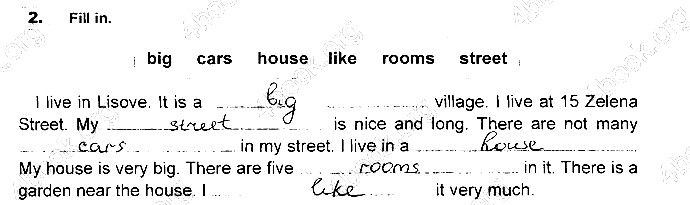 2. Fill in.
big cars house like rooms street
I live in Lisove. It is a big village. I live at 15 Zelena
Street. My street is nice and long. There are not many
cars in my street. I live in a house
My house is very big. There are five rooms in it. There is a
garden near the house. I like it very much.